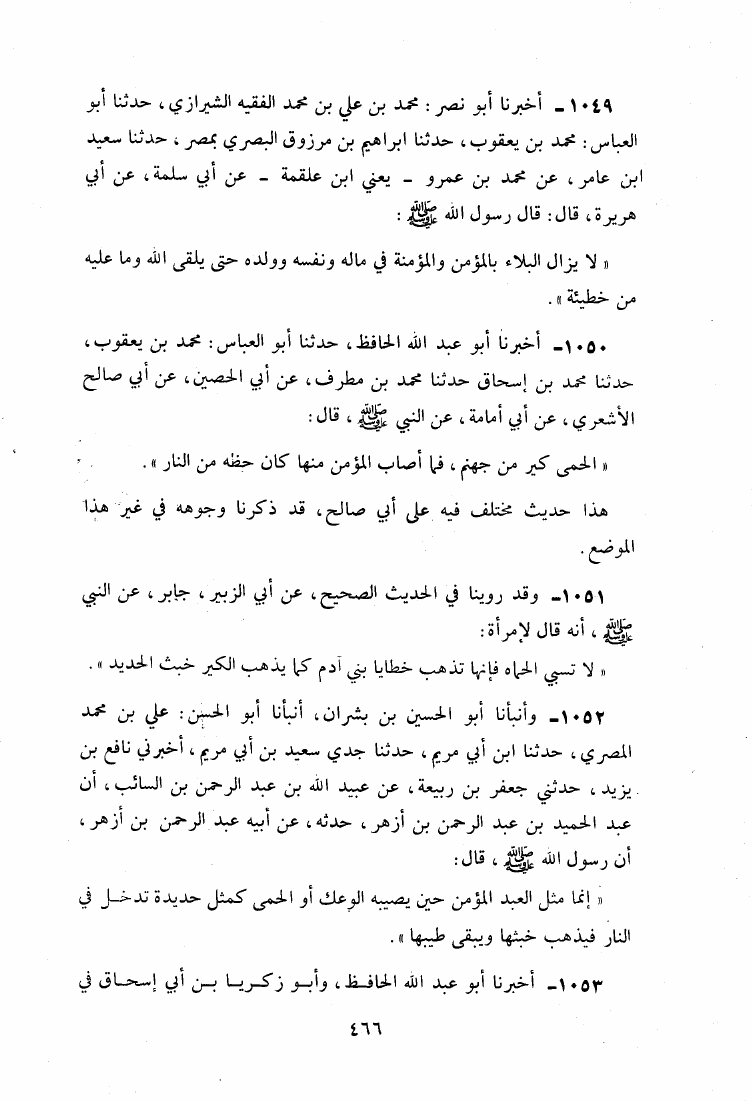 ١٠٤٩ـ أخبرنا أبو نصر: محمد بن علي بن محمد الفقيه الشيرازي، حدثنا أبو
العباس: محمد بن يعقوب، حدثنا ابراهيم بن مرزوق البصري بمصر، حدثنا سعيد
ابن عامر، عن محمد بن عمرو ـ يعني ابن علقمة ـ عن أبي سلمة، عن أبي
هريرة، قال: قال رسول الله ﷺ:
« لا يزال البلاء بالمؤمن والمؤمنة في ماله ونفسه وولده حتى يلقى الله وما عليه
من خطيئة ».
١٠٥٠ـ أخبرنا أبو عبد الله الحافظ، حدثنا أبو العباس: محمد بن يعقوب،
حدثنا محمد بن إسحاق حدثنا محمد بن مطرف، عن أبي الحصين، عن أبي صالح
الأشعري، عن أبي أمامة، عن النبي ﷺ، قال:
« الحمى كير من جهنم، فما أصاب المؤمن منها كان حظه من النار ».
هذا حديث مختلف فيه على أبي صالح، قد ذكرنا وجوهه في غير هذا
الموضع.
١٠٥١ـ وقد روينا في الحديث الصحيح، عن أبي الزبير، جابر، عن النبي
ﷺ، أنه قال لإمرأة:
« لا تسبي الحماه فإنها تذهب خطايا بني آدم كما يذهب الكير خبث الحديد ».
١٠٥٢ـ وأنبأنا أبو الحسين بن بشران، أنبأنا أبو الحسن: علي بن محمد
المصري، حدثنا ابن أبي مريم، حدثنا جدي سعيد بن أبي مريم، أخبرني نافع بن
يزيد، حدثني جعفر بن ربيعة، عن عبيد الله بن عبد الرحمن بن السائب، أن
عبد الحميد بن عبد الرحمن بن أزهر، حدثه، عن أبيه عبد الرحمن بن أزهر،
أن رسول الله ﷺ، قال:
« إنما مثل العبد المؤمن حين يصيبه الوعك أو الحمى كمثل حديدة تدخل في
النار فيذهب خبثها ويبقى طيبها ».
١٠٥٣ـ أخبرنا أبو عبد الله الحافظ، وأبو زكريا بن أبي إسحاق في
٤٦٦